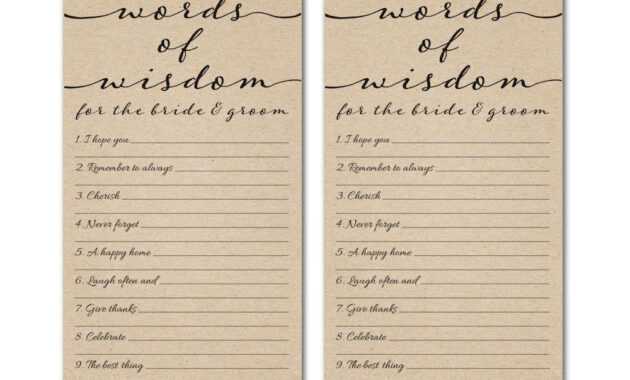 words
of
wisdom
for the bride & groom
1. I hope you
2. Remember to always
3. Cherish
4. Never forget
5. A happy home
6. Laugh often and
7. Give thanks
8. Celebrate
9. The best thing
words
of
wisdom
for the bride & groom
1. I hope you
2. Remember to always
3. Cherish
4. Never forget
5. A happy home
6. Laugh often and
7. Give thanks
8. Celebrate
9. The best thing